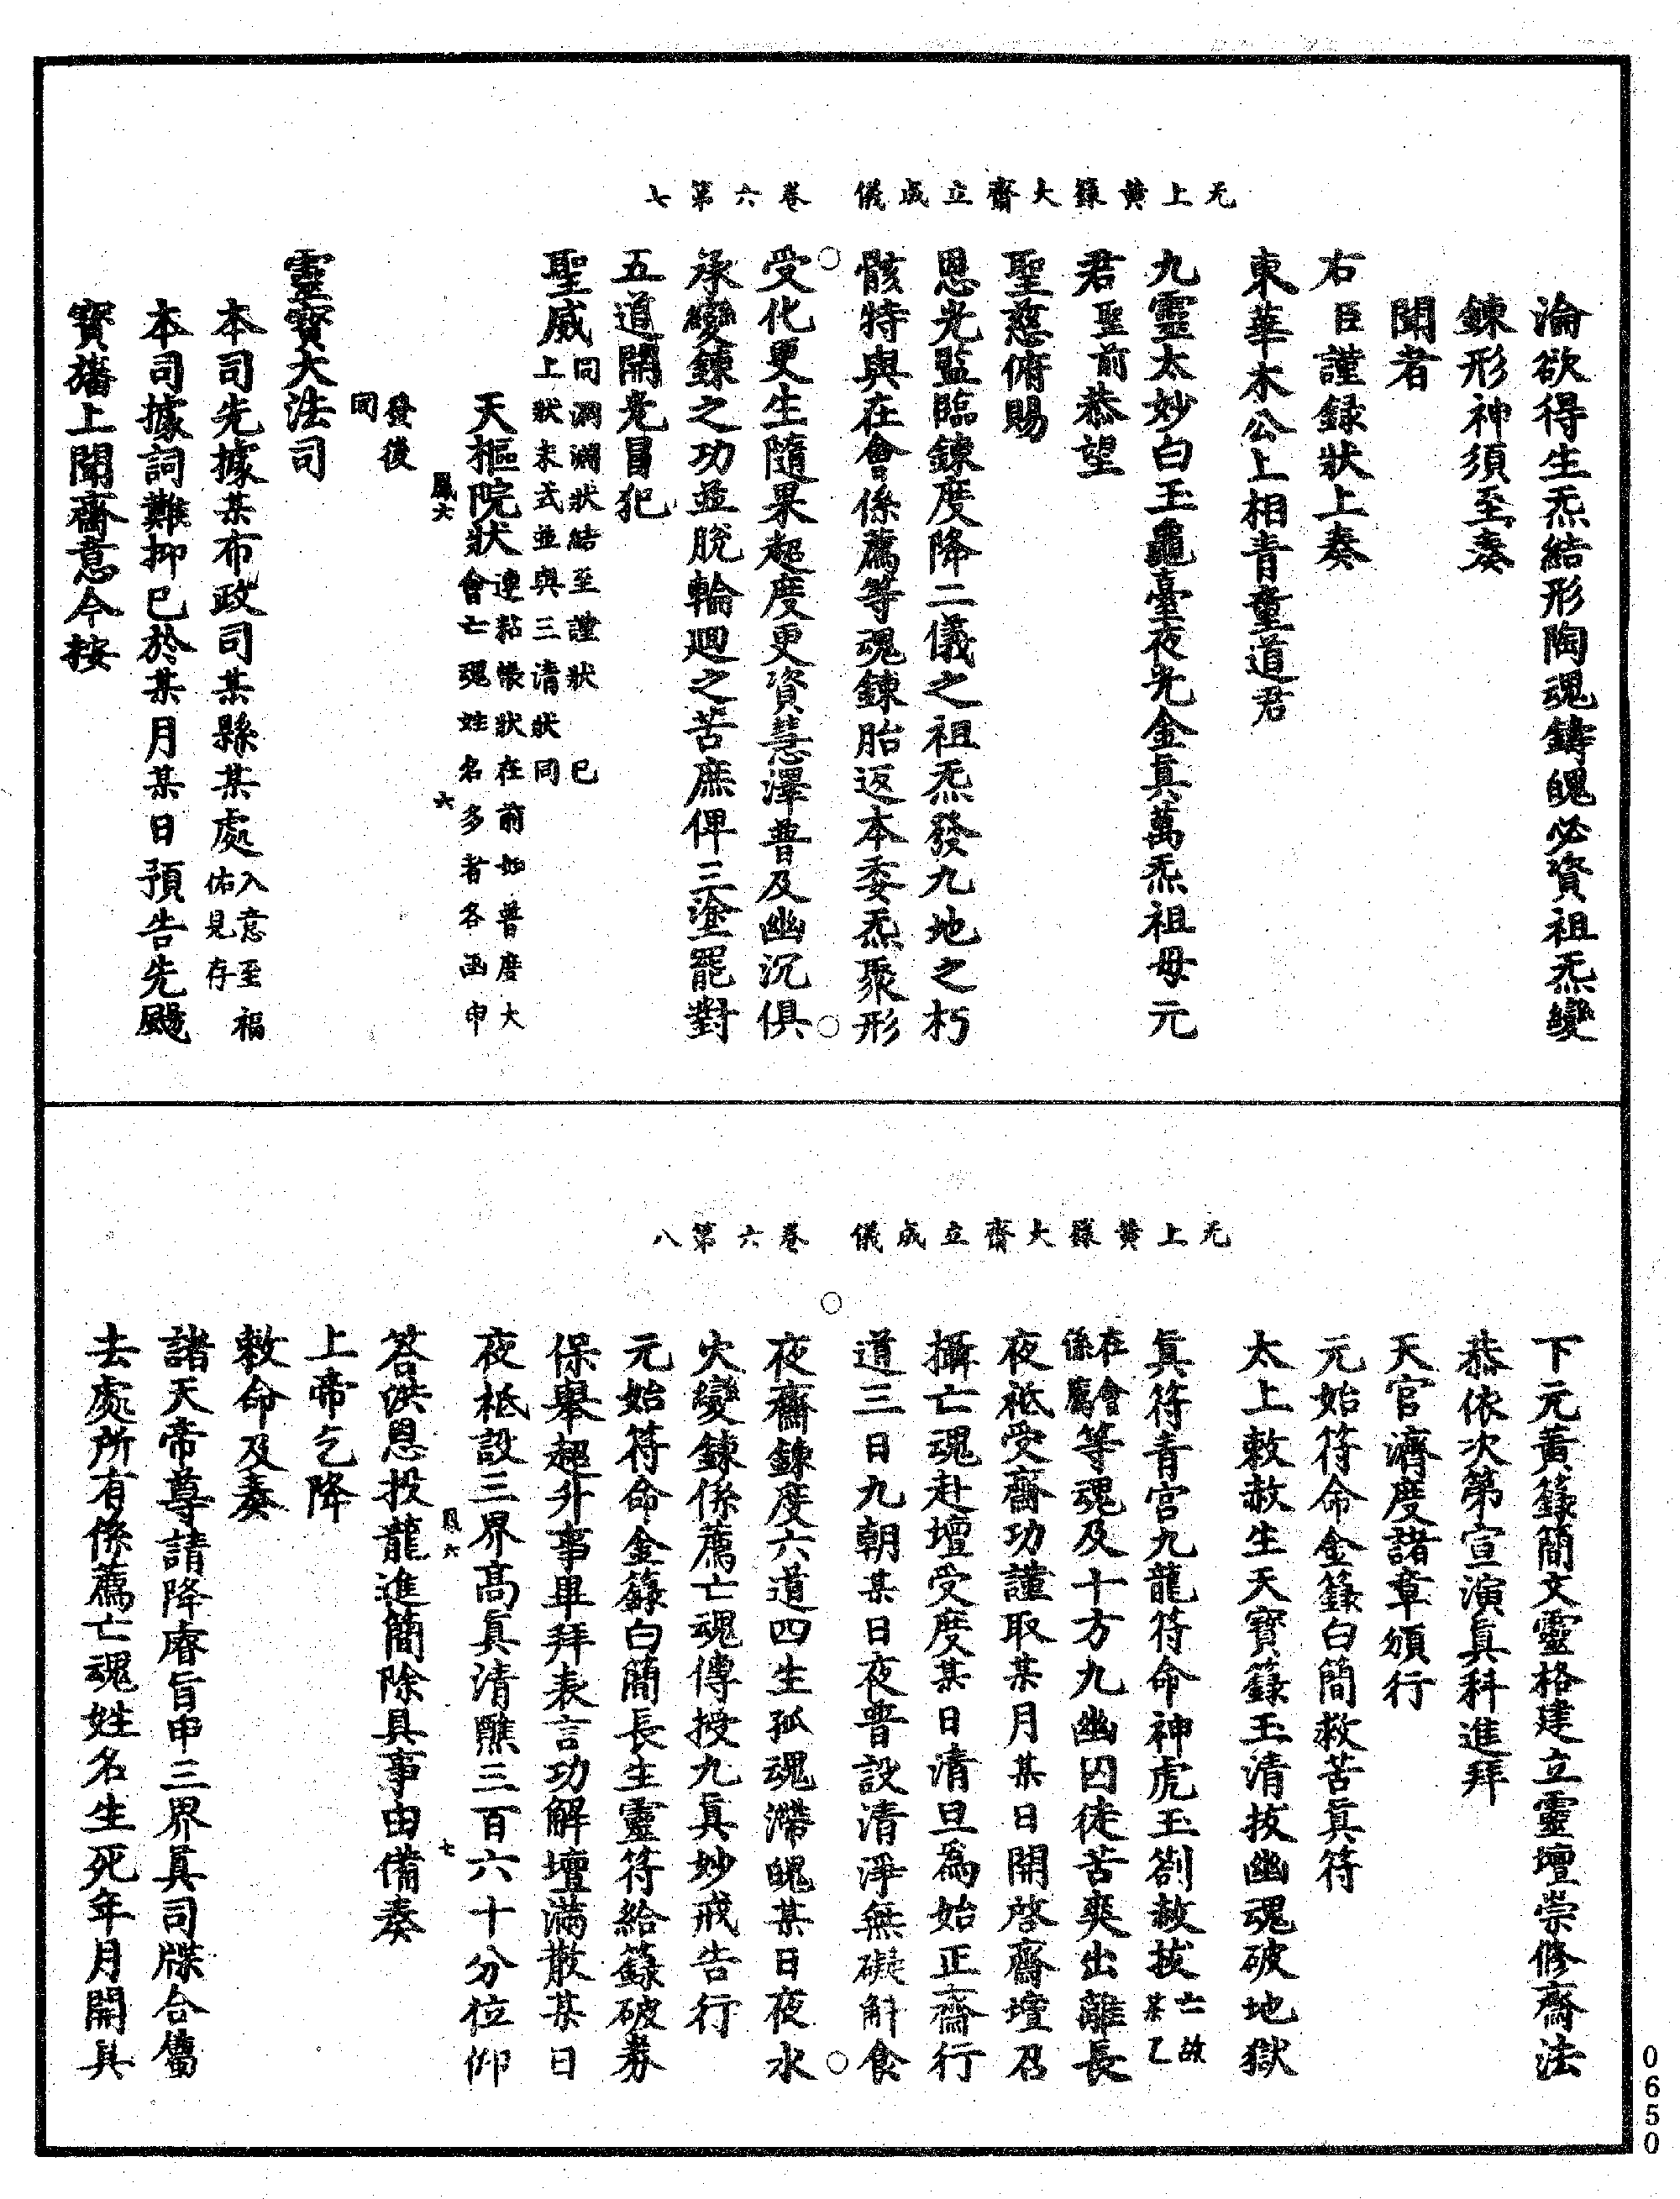 无上黃籙大齋立成儀　卷六第七
淪欲得生炁結形陶魂鑄魄必資祖炁變
鍊形神須至奏
聞者
右臣謹録狀上奏
東華木公上相青童道君
九靈太妙白玉龜臺夜光金真萬炁祖母元
君聖前恭望
聖慈俯賜
恩光監臨鍊度降二儀之祖炁發九地之朽
骸特與在會係薦等魂鍊胎返本委炁聚形
受化更生隨果超度更資慧澤普及幽沉俱
承變鍊之功並脫輪迴之苦庶俾三塗罷對
五道開光冒犯
聖威同㴠㴠狀結至謹狀　已
上狀末式並與三清狀同
天樞院狀連黏帳狀在前如普度大
會亡魂姓名多者各函申
鳳六　六
發後
同
靈寶大法司
本司先據某布政司某縣某處入意至福
佑見存
本司據詞難抑已於某月某日預告先颺
寶旛上聞齋意今按
无上黃籙大齋立成儀　卷六第八
下元黃籙簡文靈格建立靈壇崇修齋法
恭依次第宣演真科進拜
天官濟度諸章頒行
元始符命金籙白簡救苦真符
太上敕赦生天寶籙玉清拔幽魂破地獄
真符青宮九龍符命神虎玉劄赦拔亡故
某乙
在會
係薦等魂及十方九幽囚徒苦爽出離長
夜祗受齋功謹取某月某日開啓齋壇召
攝亡魂赴壇受度某日清旦為始正齋行
道三日九朝某日夜普設清淨無礙斛食
夜齋鍊度六道四生孤魂滯魄某日夜水
火變鍊係薦亡魂傳授九真妙戒告行
元始符命金籙白簡長生靈符給籙破券
保舉超升事畢拜表言功解壇滿散某日
夜祗設三界高真清醮三百六十分位仰
答洪恩投龍進簡除具事由備奏
鳳六　七
上帝乞降
敕命及奏
諸天帝尊請降睿旨申三界真司牒合屬
去處所有係薦亡魂姓名生死年月開具
0650